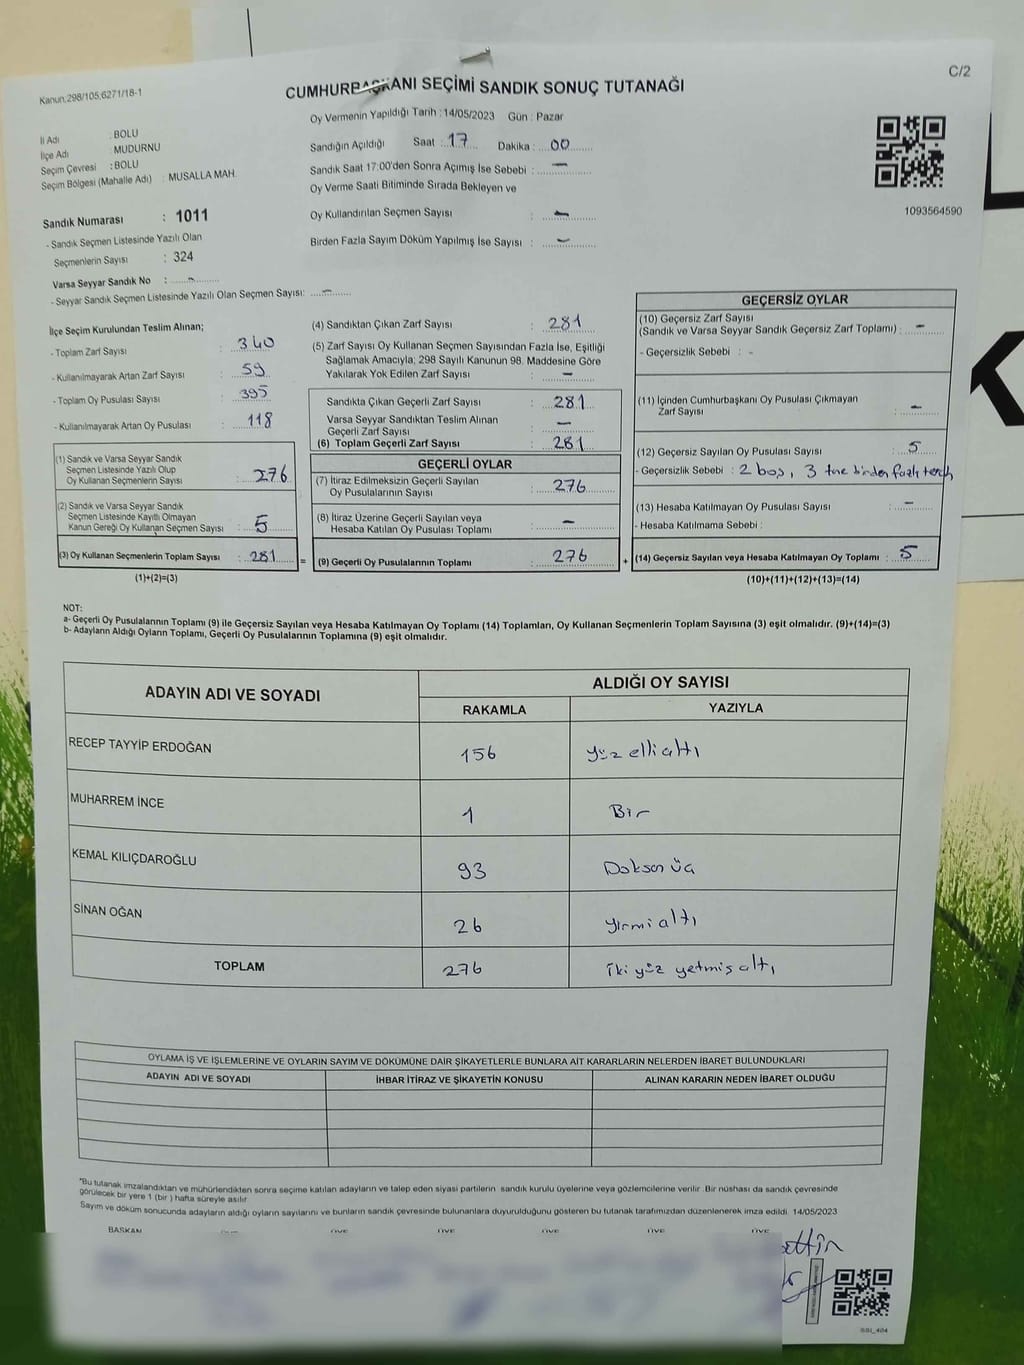 C/2
Kanun,298/105,6271/18-1
CUMHURBAŞKANI SEÇİMİ SANDIK SONUÇ TUTANAĞI
Oy Vermenin Yapıldığı Tarih : 14/05/2023 Gün : Pazar
İl Adı : BOLU
İlçe Adı : MUDURNU
Seçim Çevresi : BOLU
Seçim Bölgesi (Mahalle Adı) : MUSALLA MAH.
Sandık Numarası : 1011
- Sandık Seçmen Listesinde Yazılı Olan
Seçmenlerin Sayısı : 324
Varsa Seyyar Sandık No : -
- Seyyar Sandık Seçmen Listesinde Yazılı Olan Seçmen Sayısı: -
Sandığın Açıldığı Saat : 17 Dakika : 00
Sandık Saat 17:00'den Sonra Açımış İse Sebebi : -
Oy Verme Saati Bitiminde Sırada Bekleyen ve
Oy Kullandırılan Seçmen Sayısı : -
Birden Fazla Sayım Döküm Yapılmış İse Sayısı : -
1093564590
İlçe Seçim Kurulundan Teslim Alınan;
- Toplam Zarf Sayısı : 340
- Kullanılmayarak Artan Zarf Sayısı : 59
- Toplam Oy Pusulası Sayısı : 395
- Kullanılmayarak Artan Oy Pusulası : 118
(1) Sandık ve Varsa Seyyar Sandık
Seçmen Listesinde Yazılı Olup
Oy Kullanan Seçmenlerin Sayısı : 276
(2) Sandık ve Varsa Seyyar Sandık
Seçmen Listesinde Kayıtlı Olmayan
Kanun Gereği Oy Kullanan Seçmen Sayısı : 5
(3) Oy Kullanan Seçmenlerin Toplam Sayısı : 281 =
(1)+(2)=(3)
(4) Sandıktan Çıkan Zarf Sayısı : 281
(5) Zarf Sayısı Oy Kullanan Seçmen Sayısından Fazla İse, Eşitliği
Sağlamak Amacıyla; 298 Sayılı Kanunun 98. Maddesine Göre
Yakılarak Yok Edilen Zarf Sayısı : -
Sandıkta Çıkan Geçerli Zarf Sayısı : 281
Varsa Seyyar Sandıktan Teslim Alınan
Geçerli Zarf Sayısı : -
(6) Toplam Geçerli Zarf Sayısı : 281
GEÇERLİ OYLAR
(7) İtiraz Edilmeksizin Geçerli Sayılan
Oy Pusulalarının Sayısı : 276
(8) İtiraz Üzerine Geçerli Sayılan veya
Hesaba Katılan Oy Pusulası Toplamı : -
(9) Geçerli Oy Pusulalarının Toplamı : 276 +
GEÇERSİZ OYLAR
(10) Geçersiz Zarf Sayısı
(Sandık ve Varsa Seyyar Sandık Geçersiz Zarf Toplamı) : -
- Geçersizlik Sebebi : -
(11) İçinden Cumhurbaşkanı Oy Pusulası Çıkmayan
Zarf Sayısı : -
(12) Geçersiz Sayılan Oy Pusulası Sayısı : 5
- Geçersizlik Sebebi : 2 boş, 3 tne birden fazla tercih
(13) Hesaba Katılmayan Oy Pusulası Sayısı : -
- Hesaba Katılmama Sebebi :
(14) Geçersiz Sayılan veya Hesaba Katılmayan Oy Toplamı : 5
(10)+(11)+(12)+(13)=(14)
NOT:
a- Geçerli Oy Pusulalarının Toplamı (9) ile Geçersiz Sayılan veya Hesaba Katılmayan Oy Toplamı (14) Toplamları, Oy Kullanan Seçmenlerin Toplam Sayısına (3) eşit olmalıdır. (9)+(14)=(3)
b- Adayların Aldığı Oyların Toplamı, Geçerli Oy Pusulalarının Toplamına (9) eşit olmalıdır.
ADAYIN ADI VE SOYADI ALDIĞI OY SAYISI
RAKAMLA YAZIYLA
RECEP TAYYİP ERDOĞAN 156 yüz elli altı
MUHARREM İNCE 1 Bir
KEMAL KILIÇDAROĞLU 93 Doksan üç
SİNAN OĞAN 26 yirmi altı
TOPLAM 276 iki yüz yetmiş altı
OYLAMA İŞ VE İŞLEMLERİNE VE OYLARIN SAYIM VE DÖKÜMÜNE DAİR ŞİKAYETLERLE BUNLARA AİT KARARLARIN NELERDEN İBARET BULUNDUKLARI
ADAYIN ADI VE SOYADI İHBAR İTİRAZ VE ŞİKAYETİN KONUSU ALINAN KARARIN NEDEN İBARET OLDUĞU
*Bu tutanak imzalandıktan ve mühürlendikten sonra seçime katılan adayların ve talep eden siyasi partilerin sandık kurulu üyelerine veya gözlemcilerine verilir. Bir nüshası da sandık çevresinde
görülecek bir yere 1 (bir) hafta süreyle asılır.
Sayım ve döküm sonucunda adayların aldığı oyların sayılarını ve bunların sandık çevresinde bulunanlara duyurulduğunu gösteren bu tutanak tarafımızdan düzenlenerek imza edildi. 14/05/2023
BAŞKAN ÜYE ÜYE ÜYE ÜYE ÜYE ÜYE
K